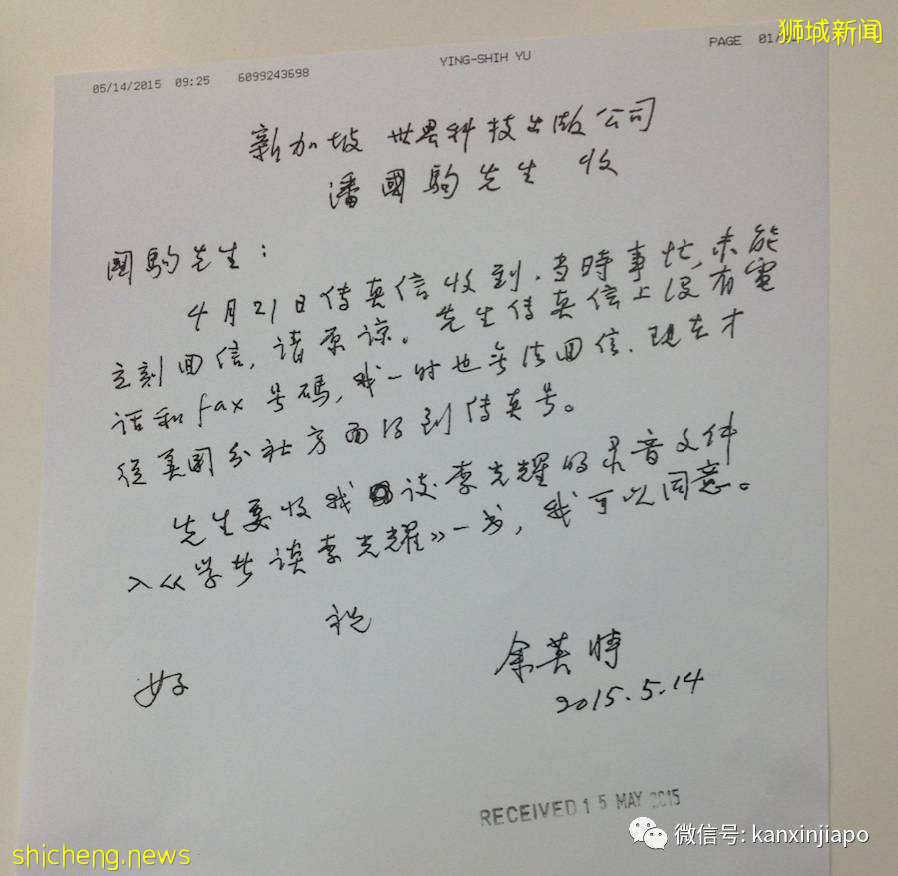 狮城新闻
05/14/2015 09:25 6099243698 YING-SHIH YU PAGE 01/
新加坡 世界科技出版公司
潘國駒先生 收
國駒先生：
4月21日传真信收到，当時事忙，未能
立刻回信，请原谅。先生传真信上没有電
话和fax号碼，我一时也无法回信，现在才
从美国分社方面得到传真号。
先生要收我谈李光耀的录音文件
入《学者谈李光耀》一书，我可以同意。
祝
好
余英時
2015.5.14
RECEIVED 15 MAY 2015
微信号: kanxinjiapo
shicheng.news